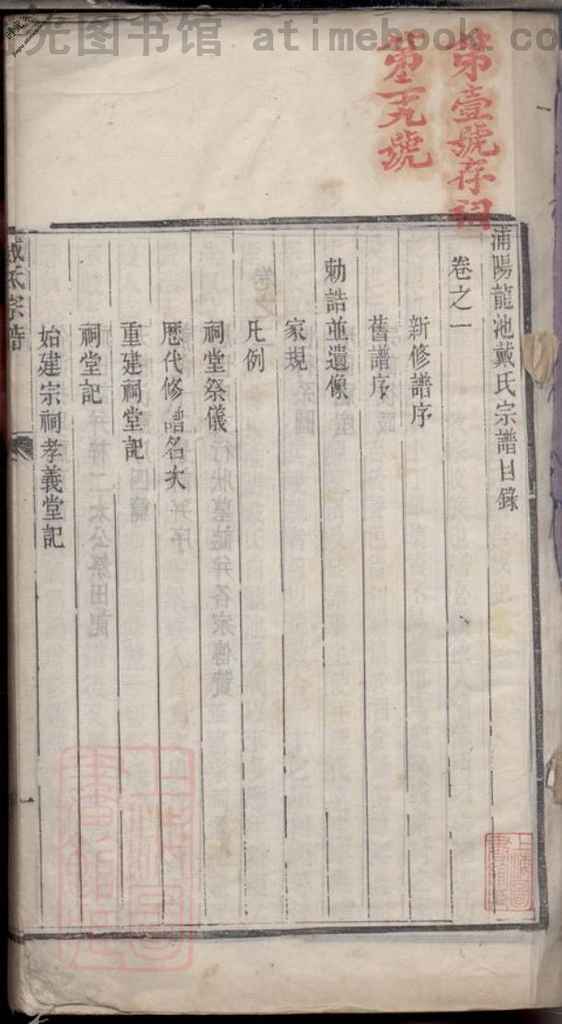 光图书馆 atimebook.co
第壹號存祠
浦陽龍池戴氏宗譜目錄
卷之一
新修譜序
舊譜序
勅誥並遺像
家規
凡例
祠堂祭儀
歷代修譜名次
重建祠堂記
祠堂記
始建宗祠孝義堂記
戴氏宗譜
一
上海圖書館藏
上海圖書館藏